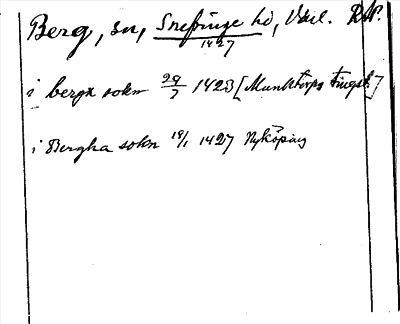 Berg, sn, Snefringe hd, Vstl. RAP.
1427
i bergx sokn 29/7 1423 [Munktorps tingst.]
i Bergha sokn 19/1 1427 Nyköping